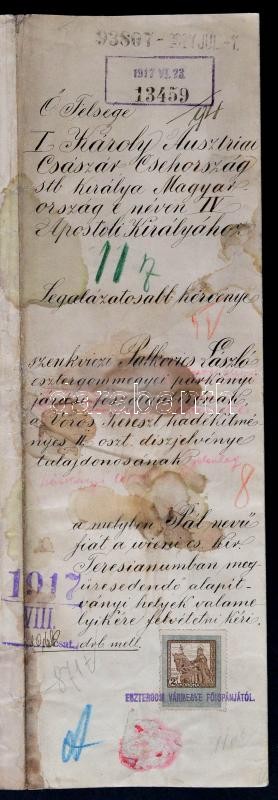 93807 - 1917 JUL -
1917 VI. 23.
13459
Ő Felsége
I Károly Ausztriai
Császár Csehország
stb királya Magyar
ország e néven IV
Apostoli Királyához
117
Legalázatosabb kérvénye
IV
szenkviczi Palkovics László
esztergommegyei párkányi
járási főszolgabírónak,
a Vörös Kereszt hadékítmé
nyes II. oszt. díszjelvénye
tulajdonosának
8
a melyben Pál nevű
fiát a wieni cs. kir.
Teresianumban meg
üresedendő alapít-
ványi helyek valame
lyikére felvétetni kéri.
1917
VIII.
csat. drb mell.
2 KORONA
ESZTERGOM VÁRMEGYE FŐISPÁNJÁTÓL.